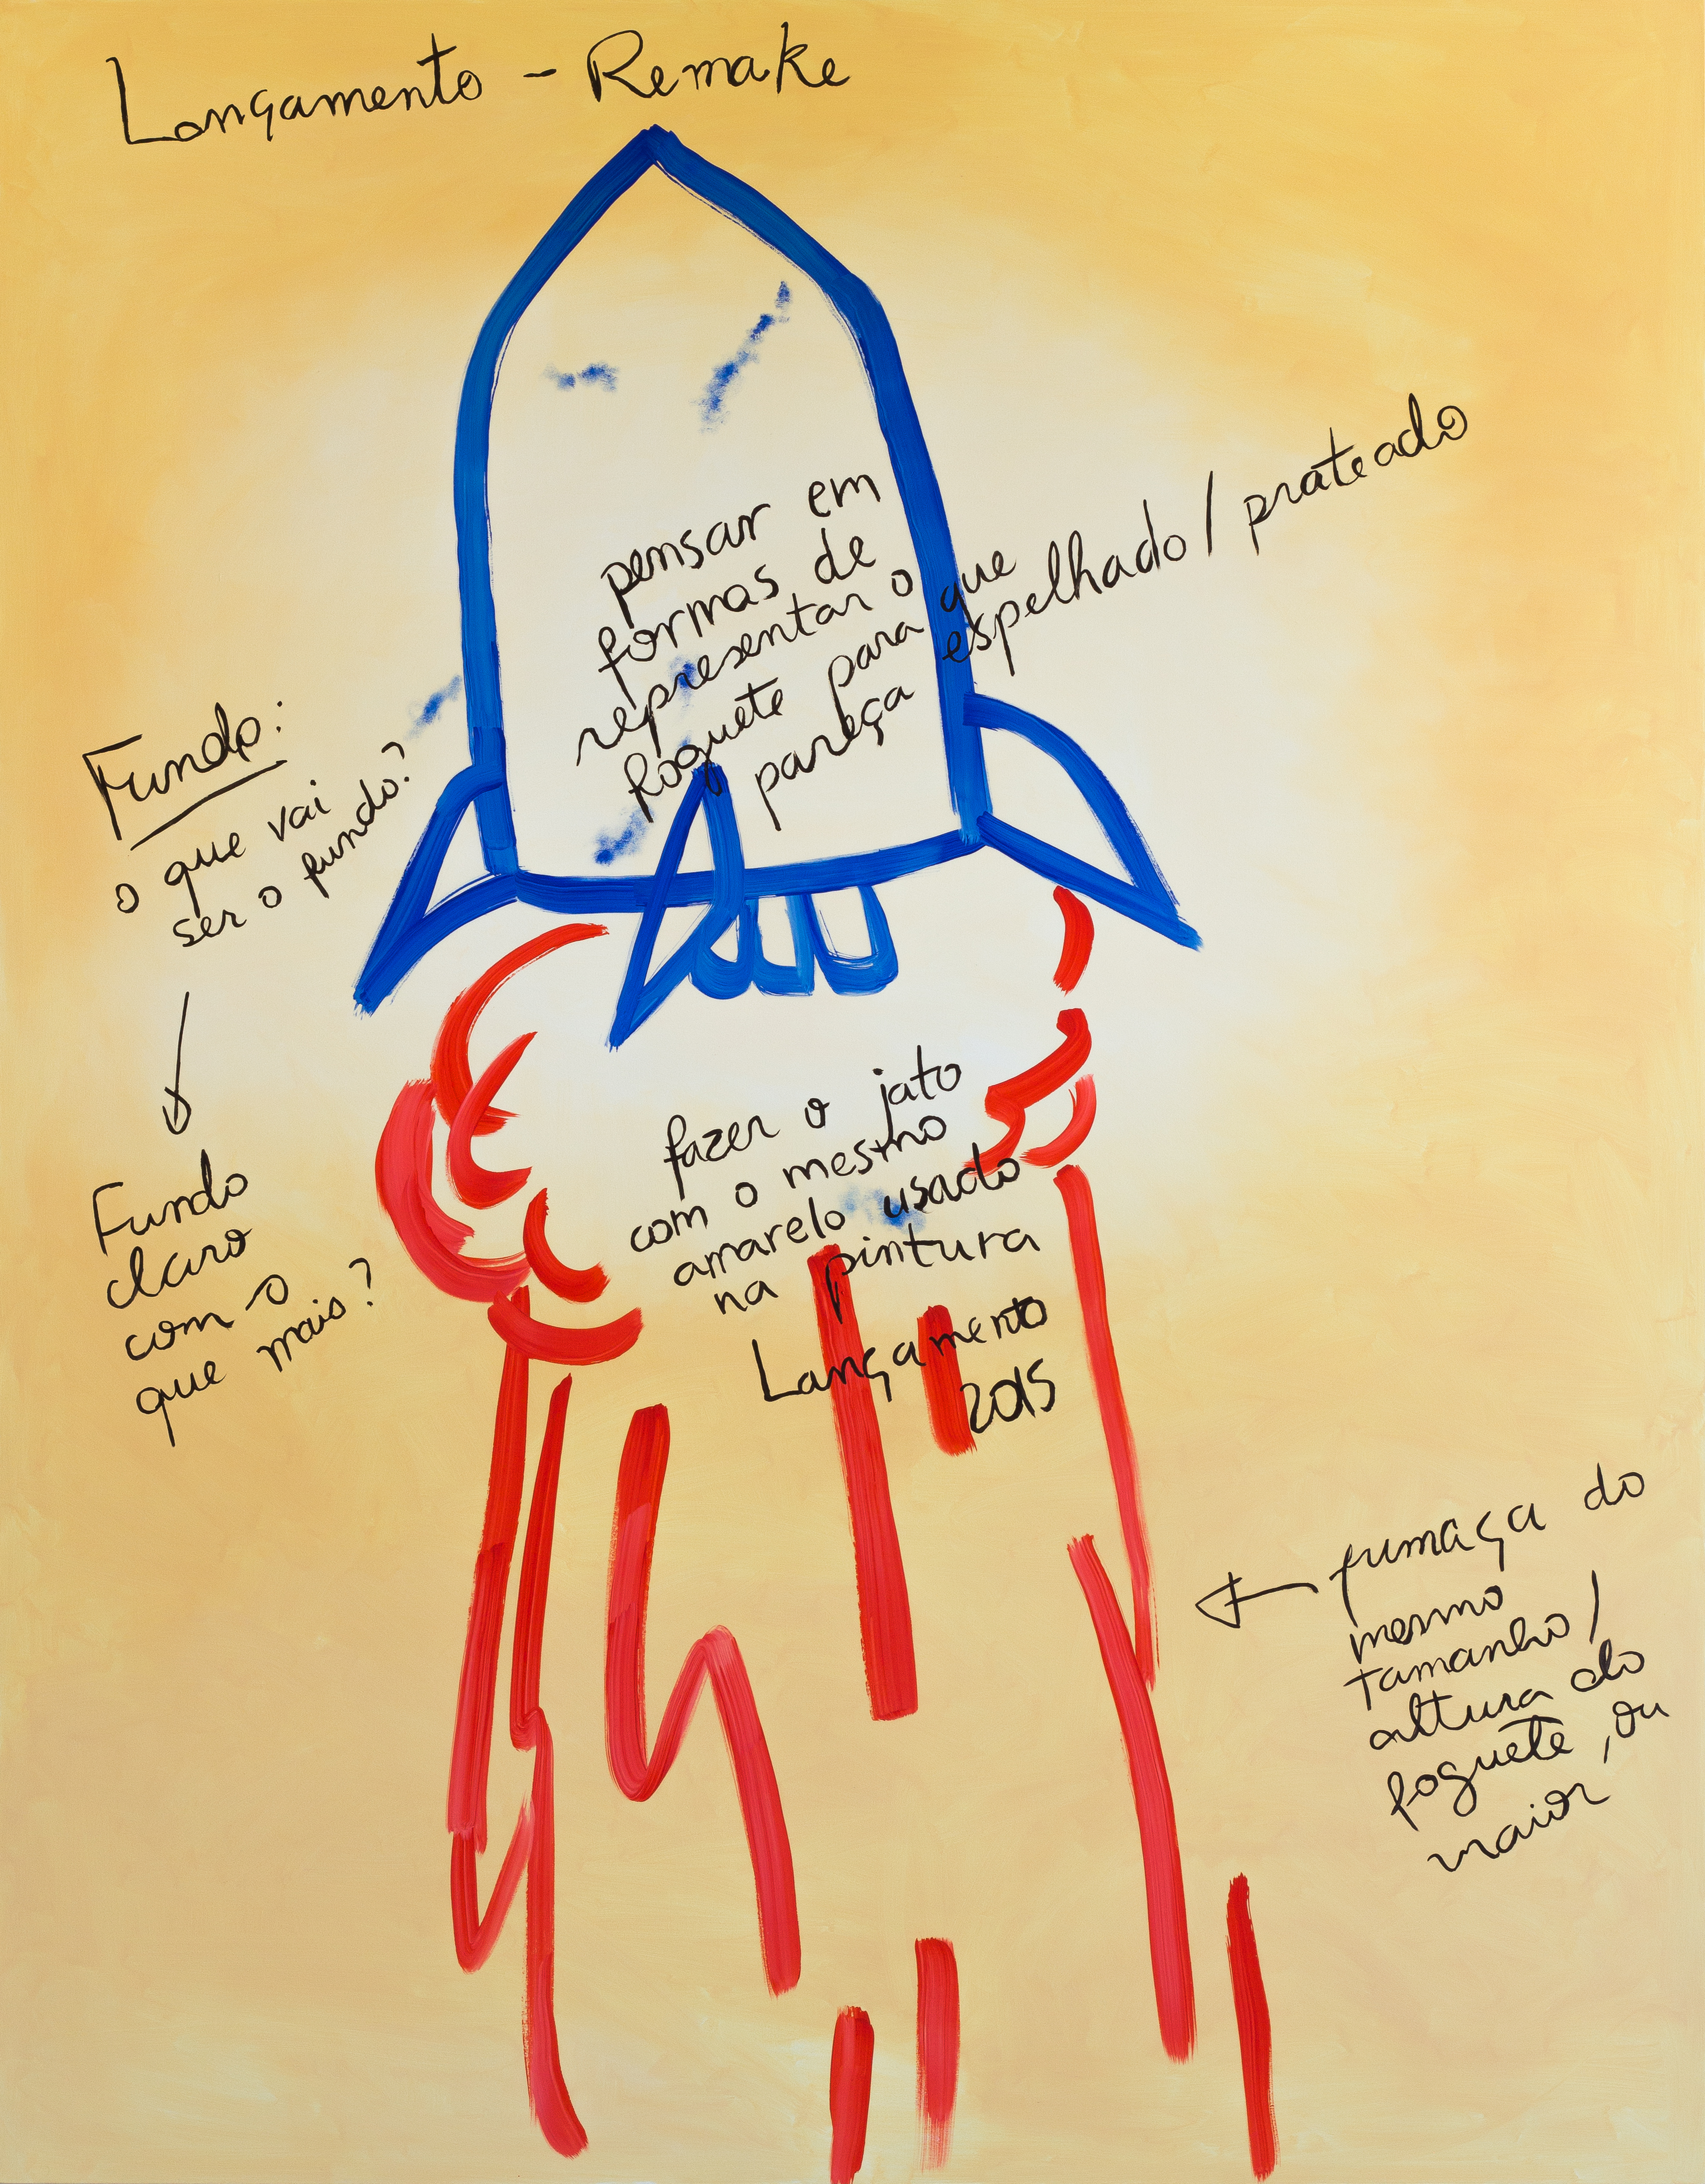 Lançamento - Remake
pensar em
formas de
representar o que
foguete para que
pareça espelhado/prateado
Fundo:
o que vai
ser o fundo?
Fundo
claro
com o
que mais?
fazer o jato
com o mesmo
amarelo usado
na pintura
Lançamento
2015
fumaça do
mesmo
tamanho/
altura do
foguete, ou
maior